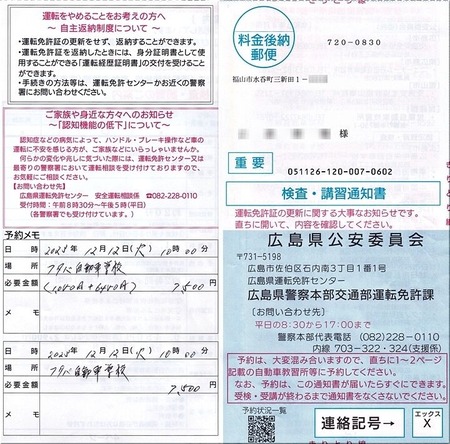 運転をやめることをお考えの方へ
～ 自主返納制度について ～
・運転免許証の更新をせず、返納することができます。
・運転免許証を返納したときには、身分証明書として使用することができる「運転経歴証明書」の交付を受けることができます。
・手続きの方法等は、運転免許センターかお近くの警察署にお問い合わせください。
ご家族や身近な方々へのお知らせ
～「認知機能の低下」について～
認知症などの病気によって、ハンドル・ブレーキ操作など車の運転に不安を感じる方が、ご家族などにいらっしゃいませんか。
何らかの変化や兆しに気づいた際には、運転免許センター又は最寄りの警察署において運転相談を受け付けておりますので、お気軽にご相談ください。
【お問い合わせ先】
広島県運転免許センター 安全運転相談係 ☎082-228-0110
受付時間：午前8時30分～午後5時(平日)
(各警察署でも受け付けています。)
予約メモ
日 時 12月12日( ) 10時00分
場 所 自動車学校
必要金額 7,500円
メ モ
日 時 12月12日( ) 10時00分
場 所 自動車学校
必要金額 7,500円
メ モ
料金後納
郵便
720-0830
福山市水呑町三新田1-
様
重 要
051126-120-007-0602
検査・講習通知書
運転免許証の更新に関する大事なお知らせです。
直ちに開いて、内容を確認してください。
広島県公安委員会
〒731-5198
広島市佐伯区石内南3丁目1番1号
広島県運転免許センター
広島県警察本部交通部運転免許課
【お問い合わせ先】
平日の8:30から17:00まで
警察本部代表電話 (082)228-0110
内線 703-322，324(支援係)
予約は、大変混み合いますので、直ちに1～2ページ記載の自動車教習所等に予約してください。
なお、予約は、この通知書が届いたらすぐにできます。
受検・受講が終わるまで通知書をなくさないでください。
予約状況一覧
連絡記号→
エックス
X